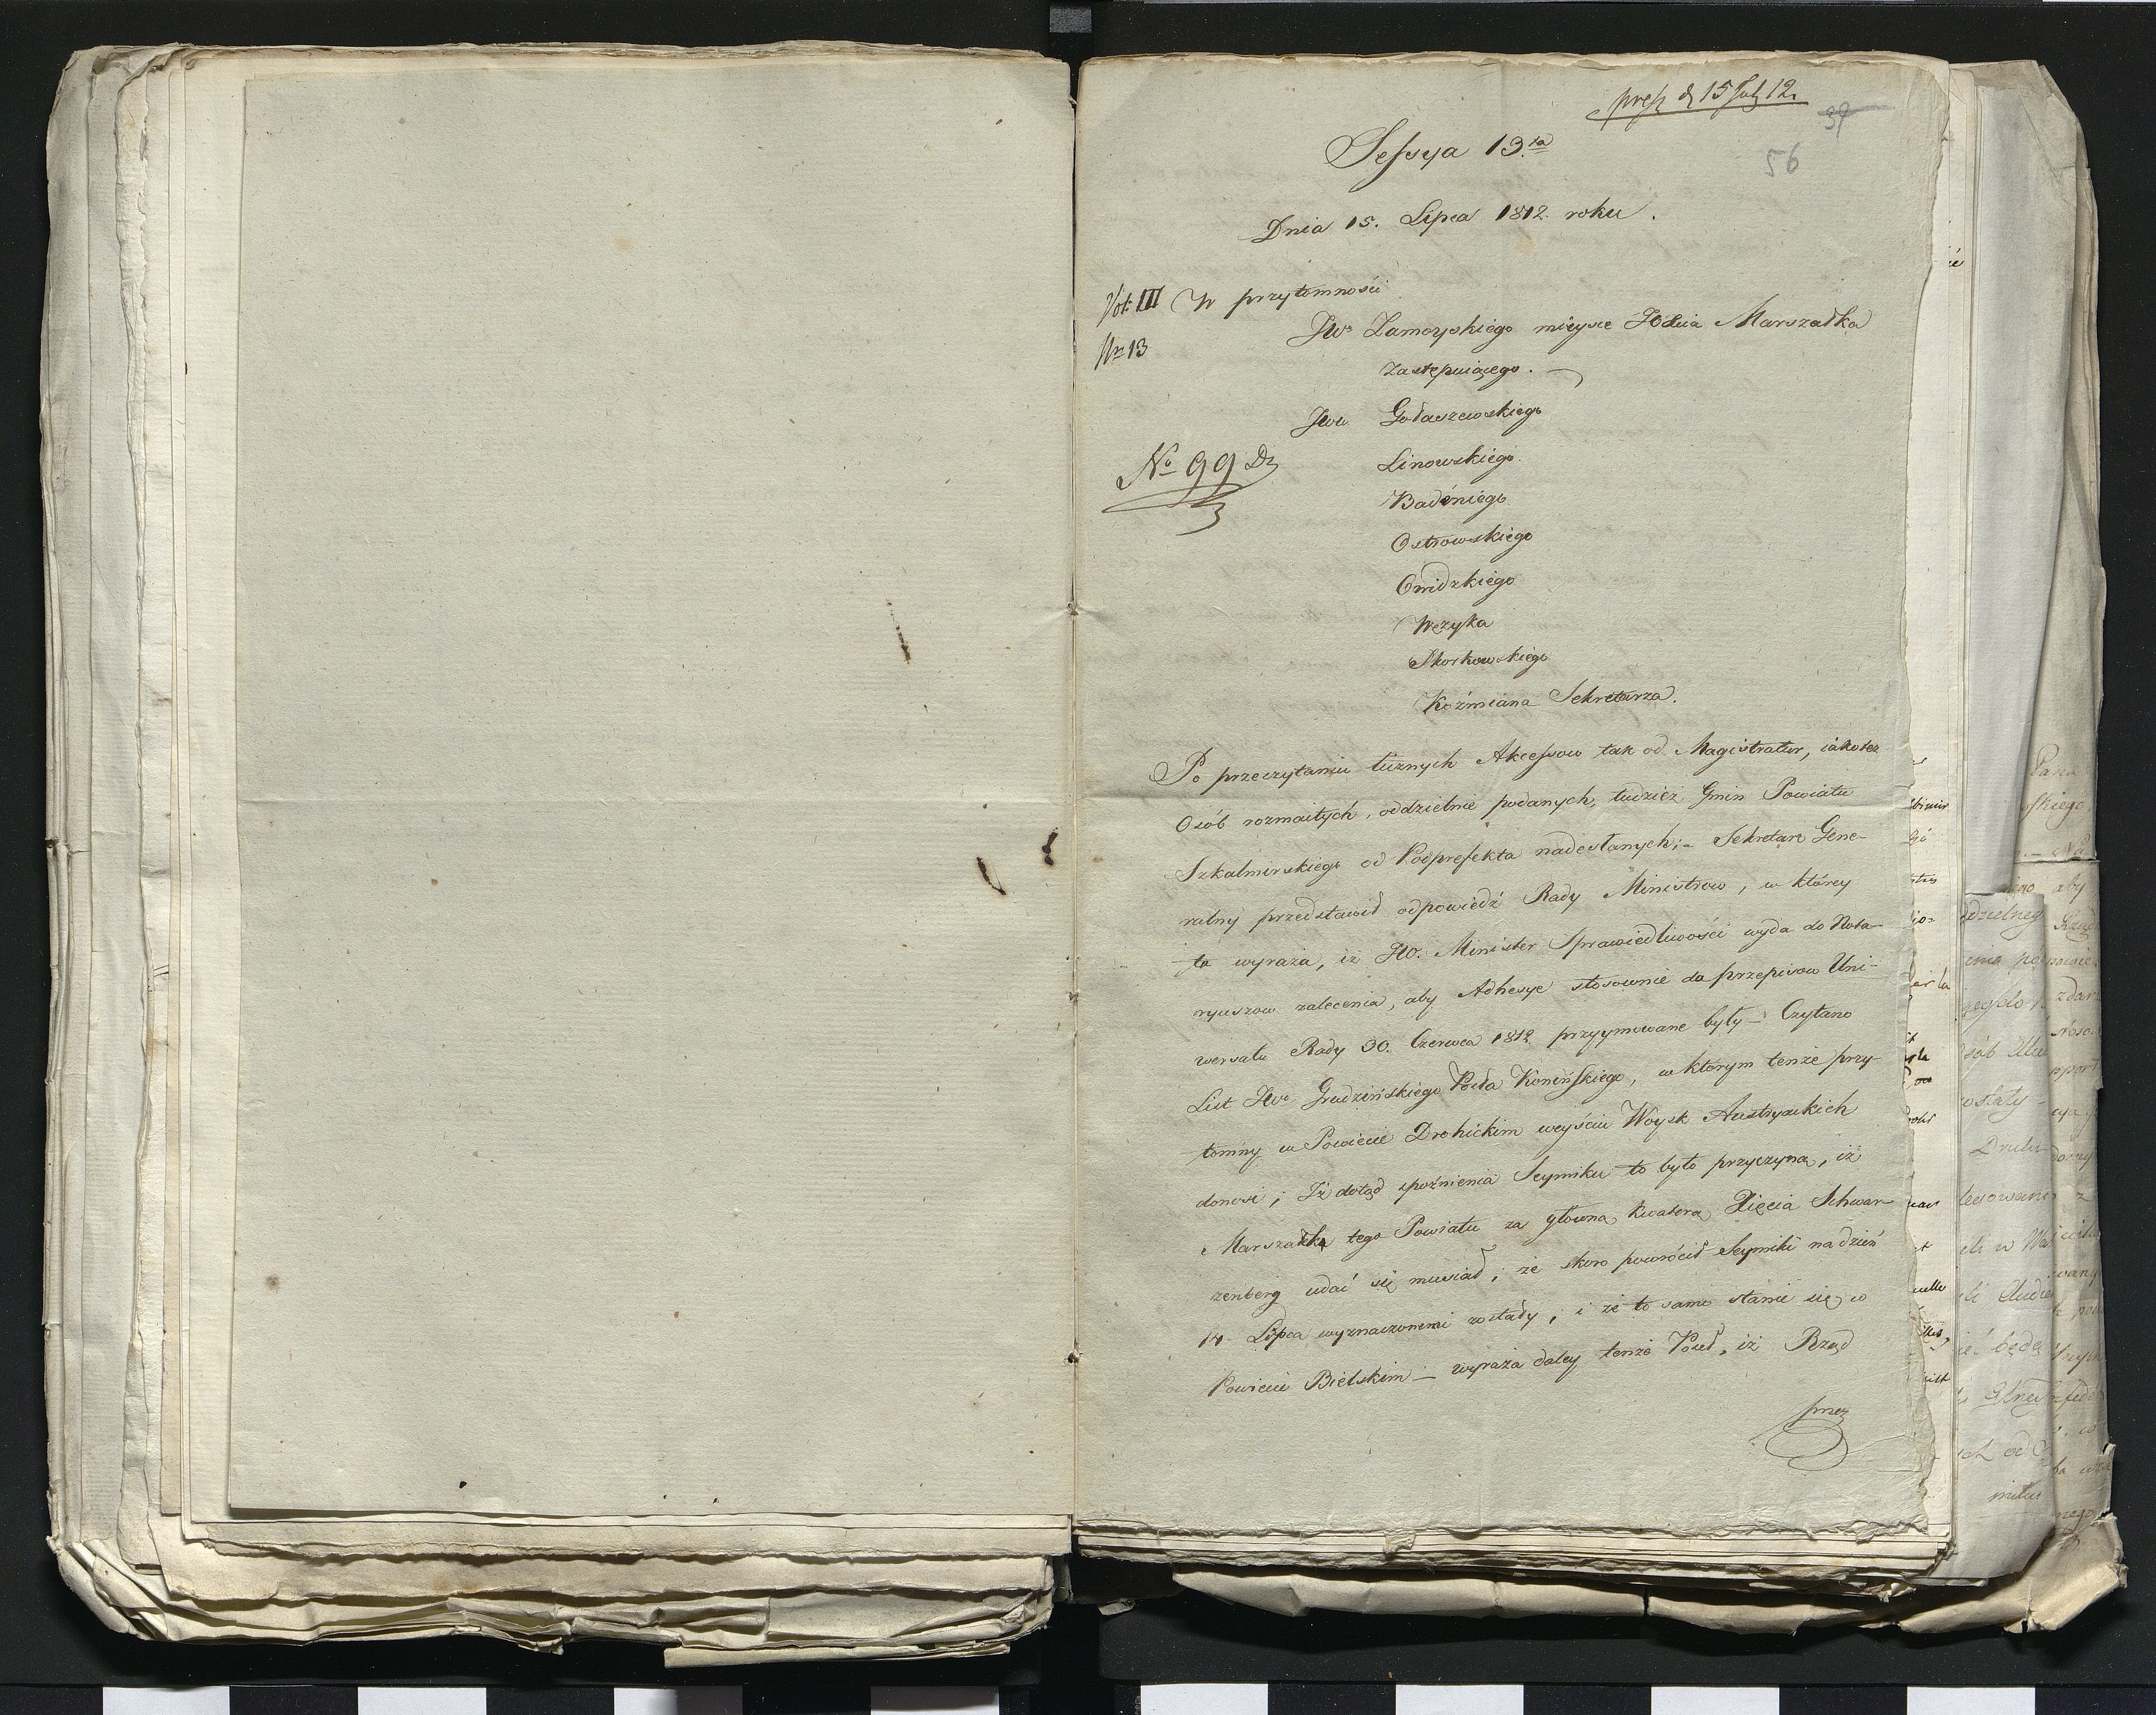 pres d 15 July 12.
37
56
Sessya 13ta
Dnia 15. Lipca 1812. roku.
Vol: III
Nr 13
W przytomności
JW Zamoyskiego mieysce JOXcia Marszałka
Zastępuiącego.
No 99 Dz
JWW Gołaszewskiego
Linowskiego
Badeniego
Ostrowskiego
Owidzkiego
Wężyka
Skorkowskiego
Koźmiana Sekretarza.
Po przeczytaniu licznych Akcessow tak od Magistratur, iakotez
Osób rozmaitych, oddzielnie podanych, tudzież Gmin Powiatu
Szkalmirskiego od Podprefekta nadesłanych; - Sekretarz Gene-
ralny przedstawił odpowiedź Rady Ministrow, w którey
ta wyraża, iż JW. Minister Sprawiedliwości wyda do Nota-
ryuszow zalecenia, aby Adhesye stosownie do przepisow Uni-
wersału Rady 30. Czerwca 1812 przyymowane były - Czytano
List JW. Grudzińskiego Posła Konińskiego, w którym tenże przy-
tomny w Powiecie Drohickim weyściu Woysk Austryackich
donosi; Iż dotąd spoźnienia Seymiku to było przyczyną, iż
Marszałek tego Powiatu za główną kwaterą Xięcia Schwar-
zenberg udać się musiał; że skoro powrócił Seymiki na dzień
14 Lipca wyznaczonemi zostały; i że to samo stanie się w
Powiecie Bielskim - wyraża daley tenże Poseł, iż Rząd
przez